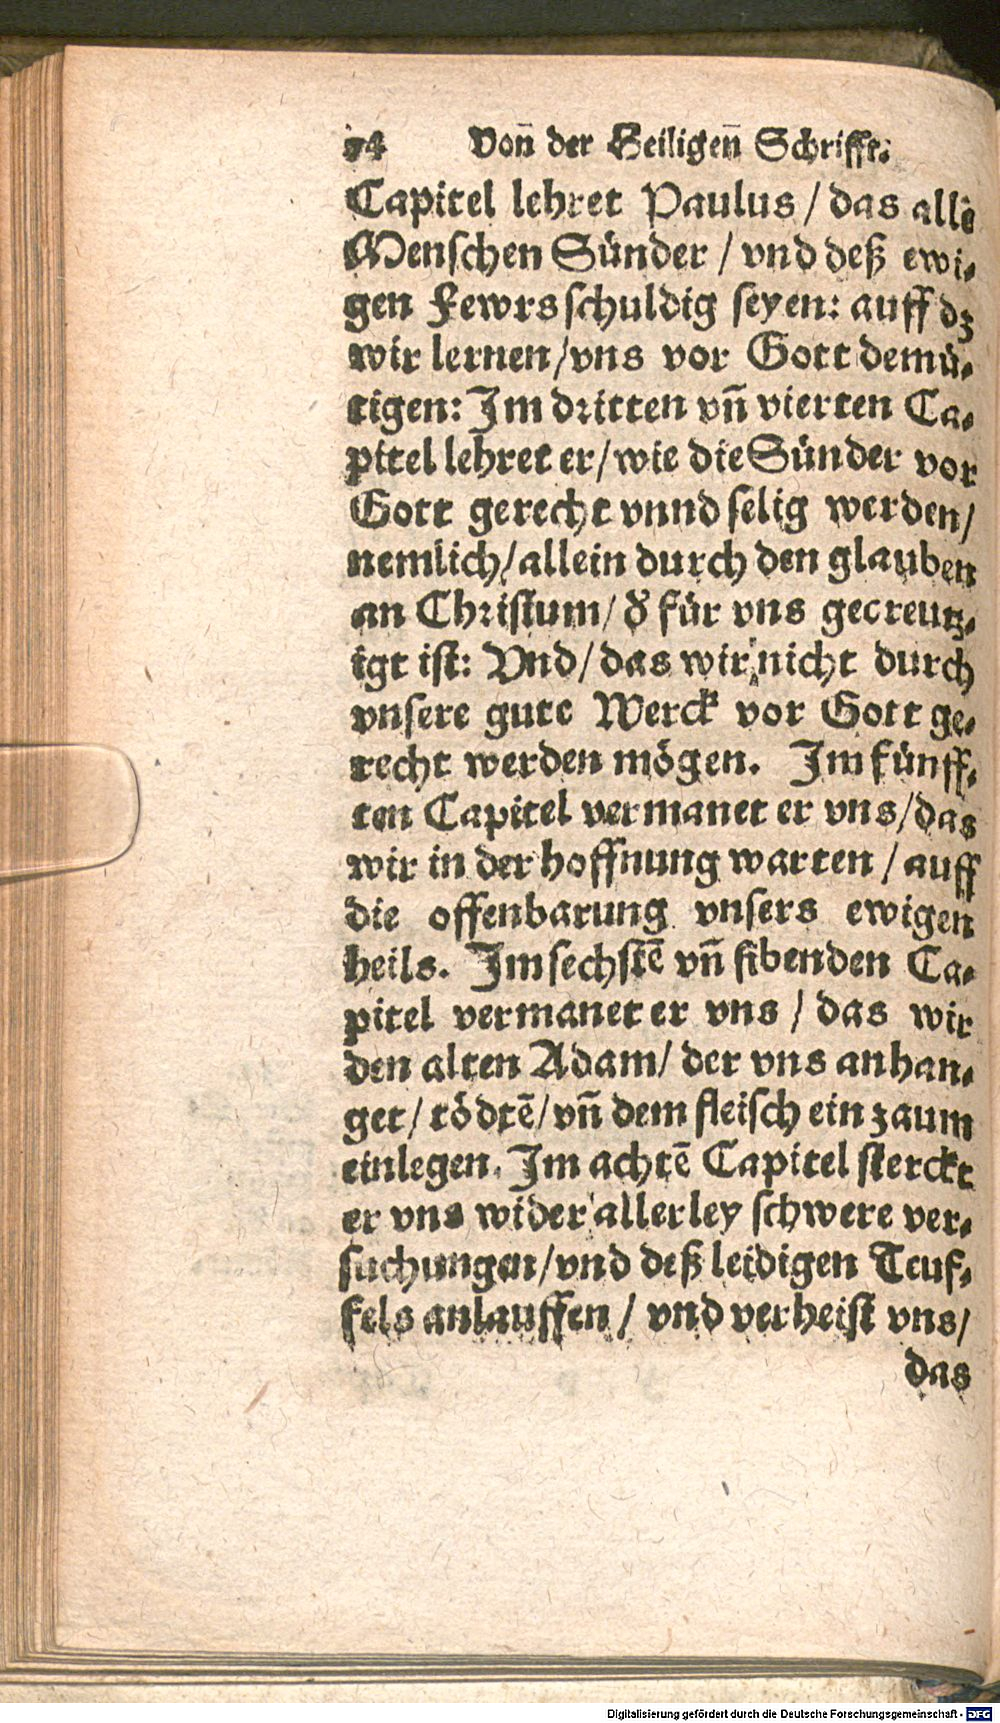 74 Von̄ der Heiligen̄ Schrifft.
Capitel lehret Paulus / das alle
Menschen Sünder / vnd deß ewi-
gen Fewrs schuldig seyen: auff dz
wir lernen / vns vor Gott demü-
tigen: Im dritten vn̄ vierten Ca-
pitel lehret er / wie die Sünder vor
Gott gerecht vnnd selig werden /
nemlich / allein durch den glauben
an Christum / d̕ für vns gecreutz-
igt ist: Vnd / das wir nicht durch
vnsere gute Werck vor Gott ge-
recht werden mögen. Im fünff-
ten Capitel vermanet er vns / das
wir in der hoffnung warten / auff
die offenbarung vnsers ewigen
heils. Im sechstē vn̄ sibenden Ca-
pitel vermanet er vns / das wir
den alten Adam / der vns anhan-
get / tödtē / vn̄ dem fleisch ein zaum
einlegen. Im achtē Capitel sterckt
er vns wider allerley schwere ver-
suchungen / vnd deß leidigen Teuf-
fels anlauffen / vnd verheist vns /
das
Digitalisierung gefördert durch die Deutsche Forschungsgemeinschaft - DFG